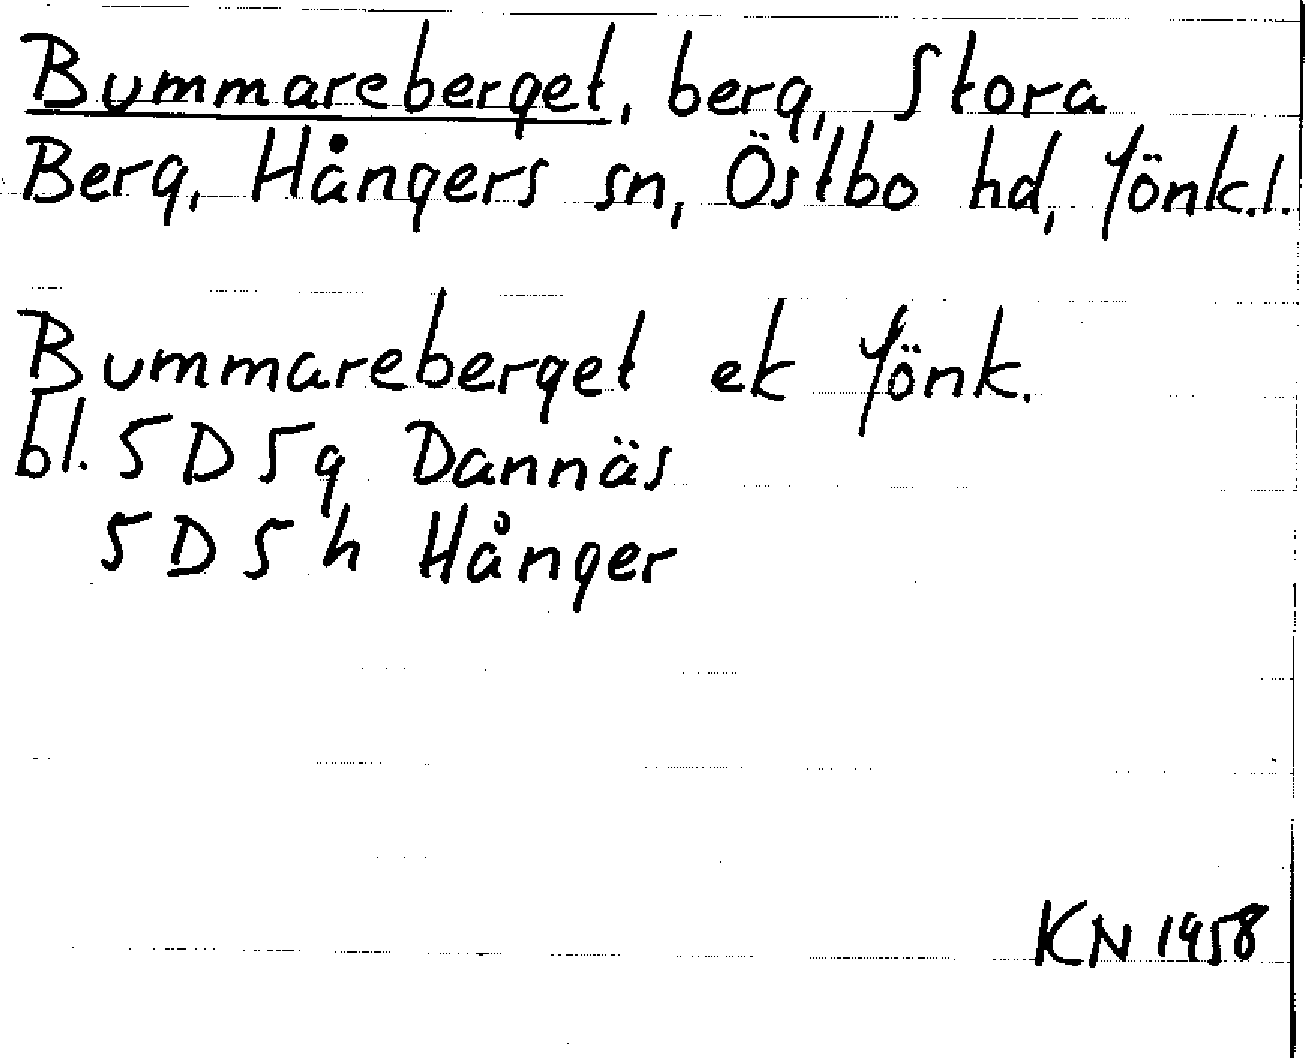 Bummareberget, berg, Stora
Berg, Hångers sn, Östbo hd, Jönk.l.
Bummareberget ek Jönk.
bl. 5D5g Dannäs
5D5h Hånger
KN 1958